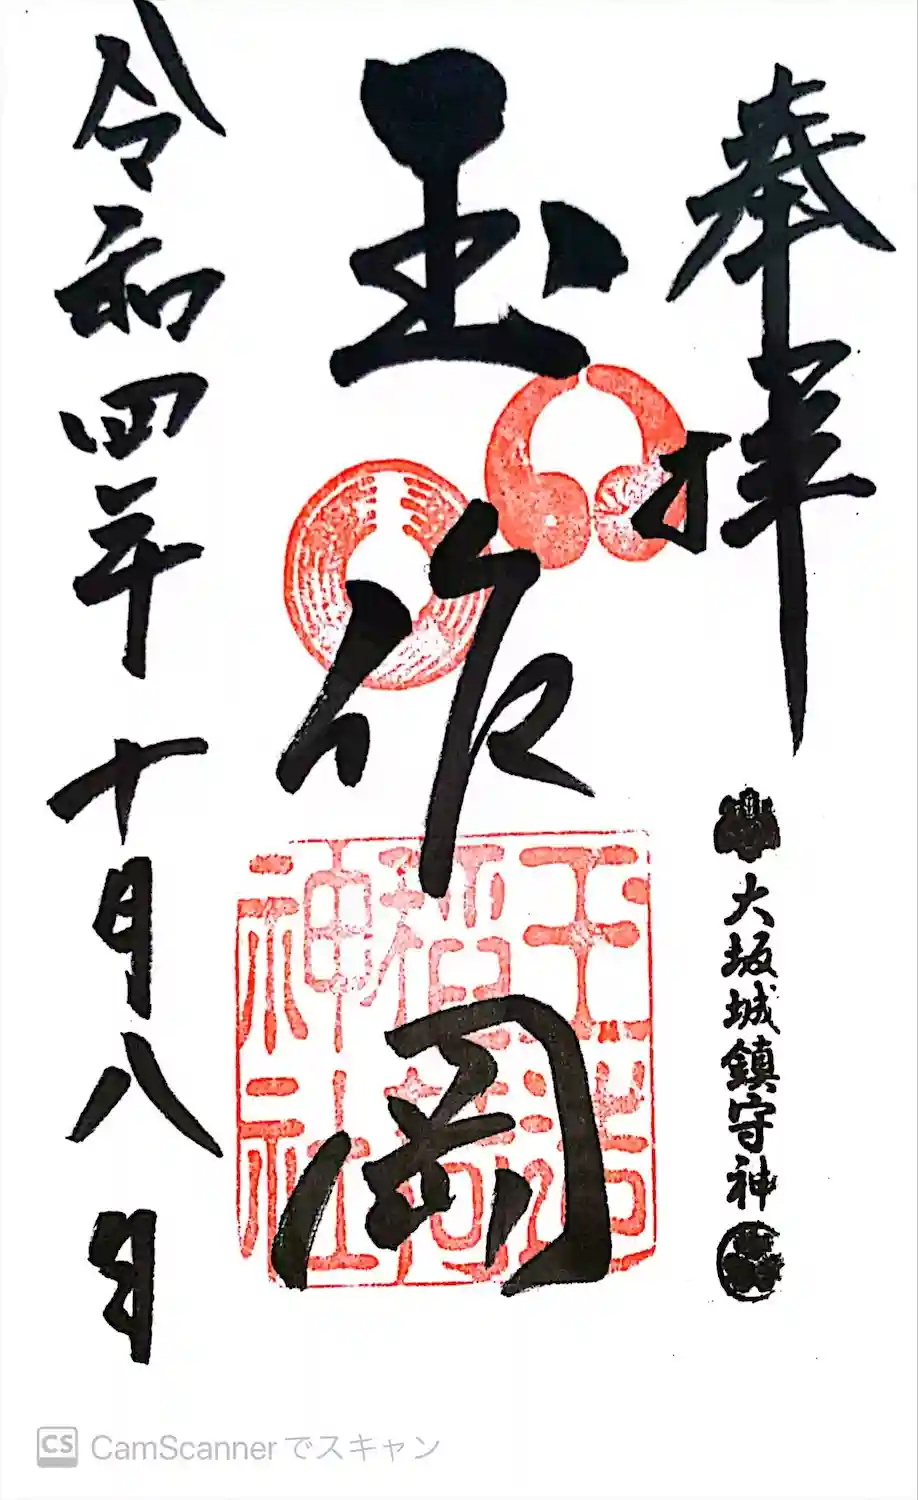 奉拝
大坂城鎮守神
玉作岡
玉造
稲荷
神社
令和四年十月八日
CS CamScannerでスキャン